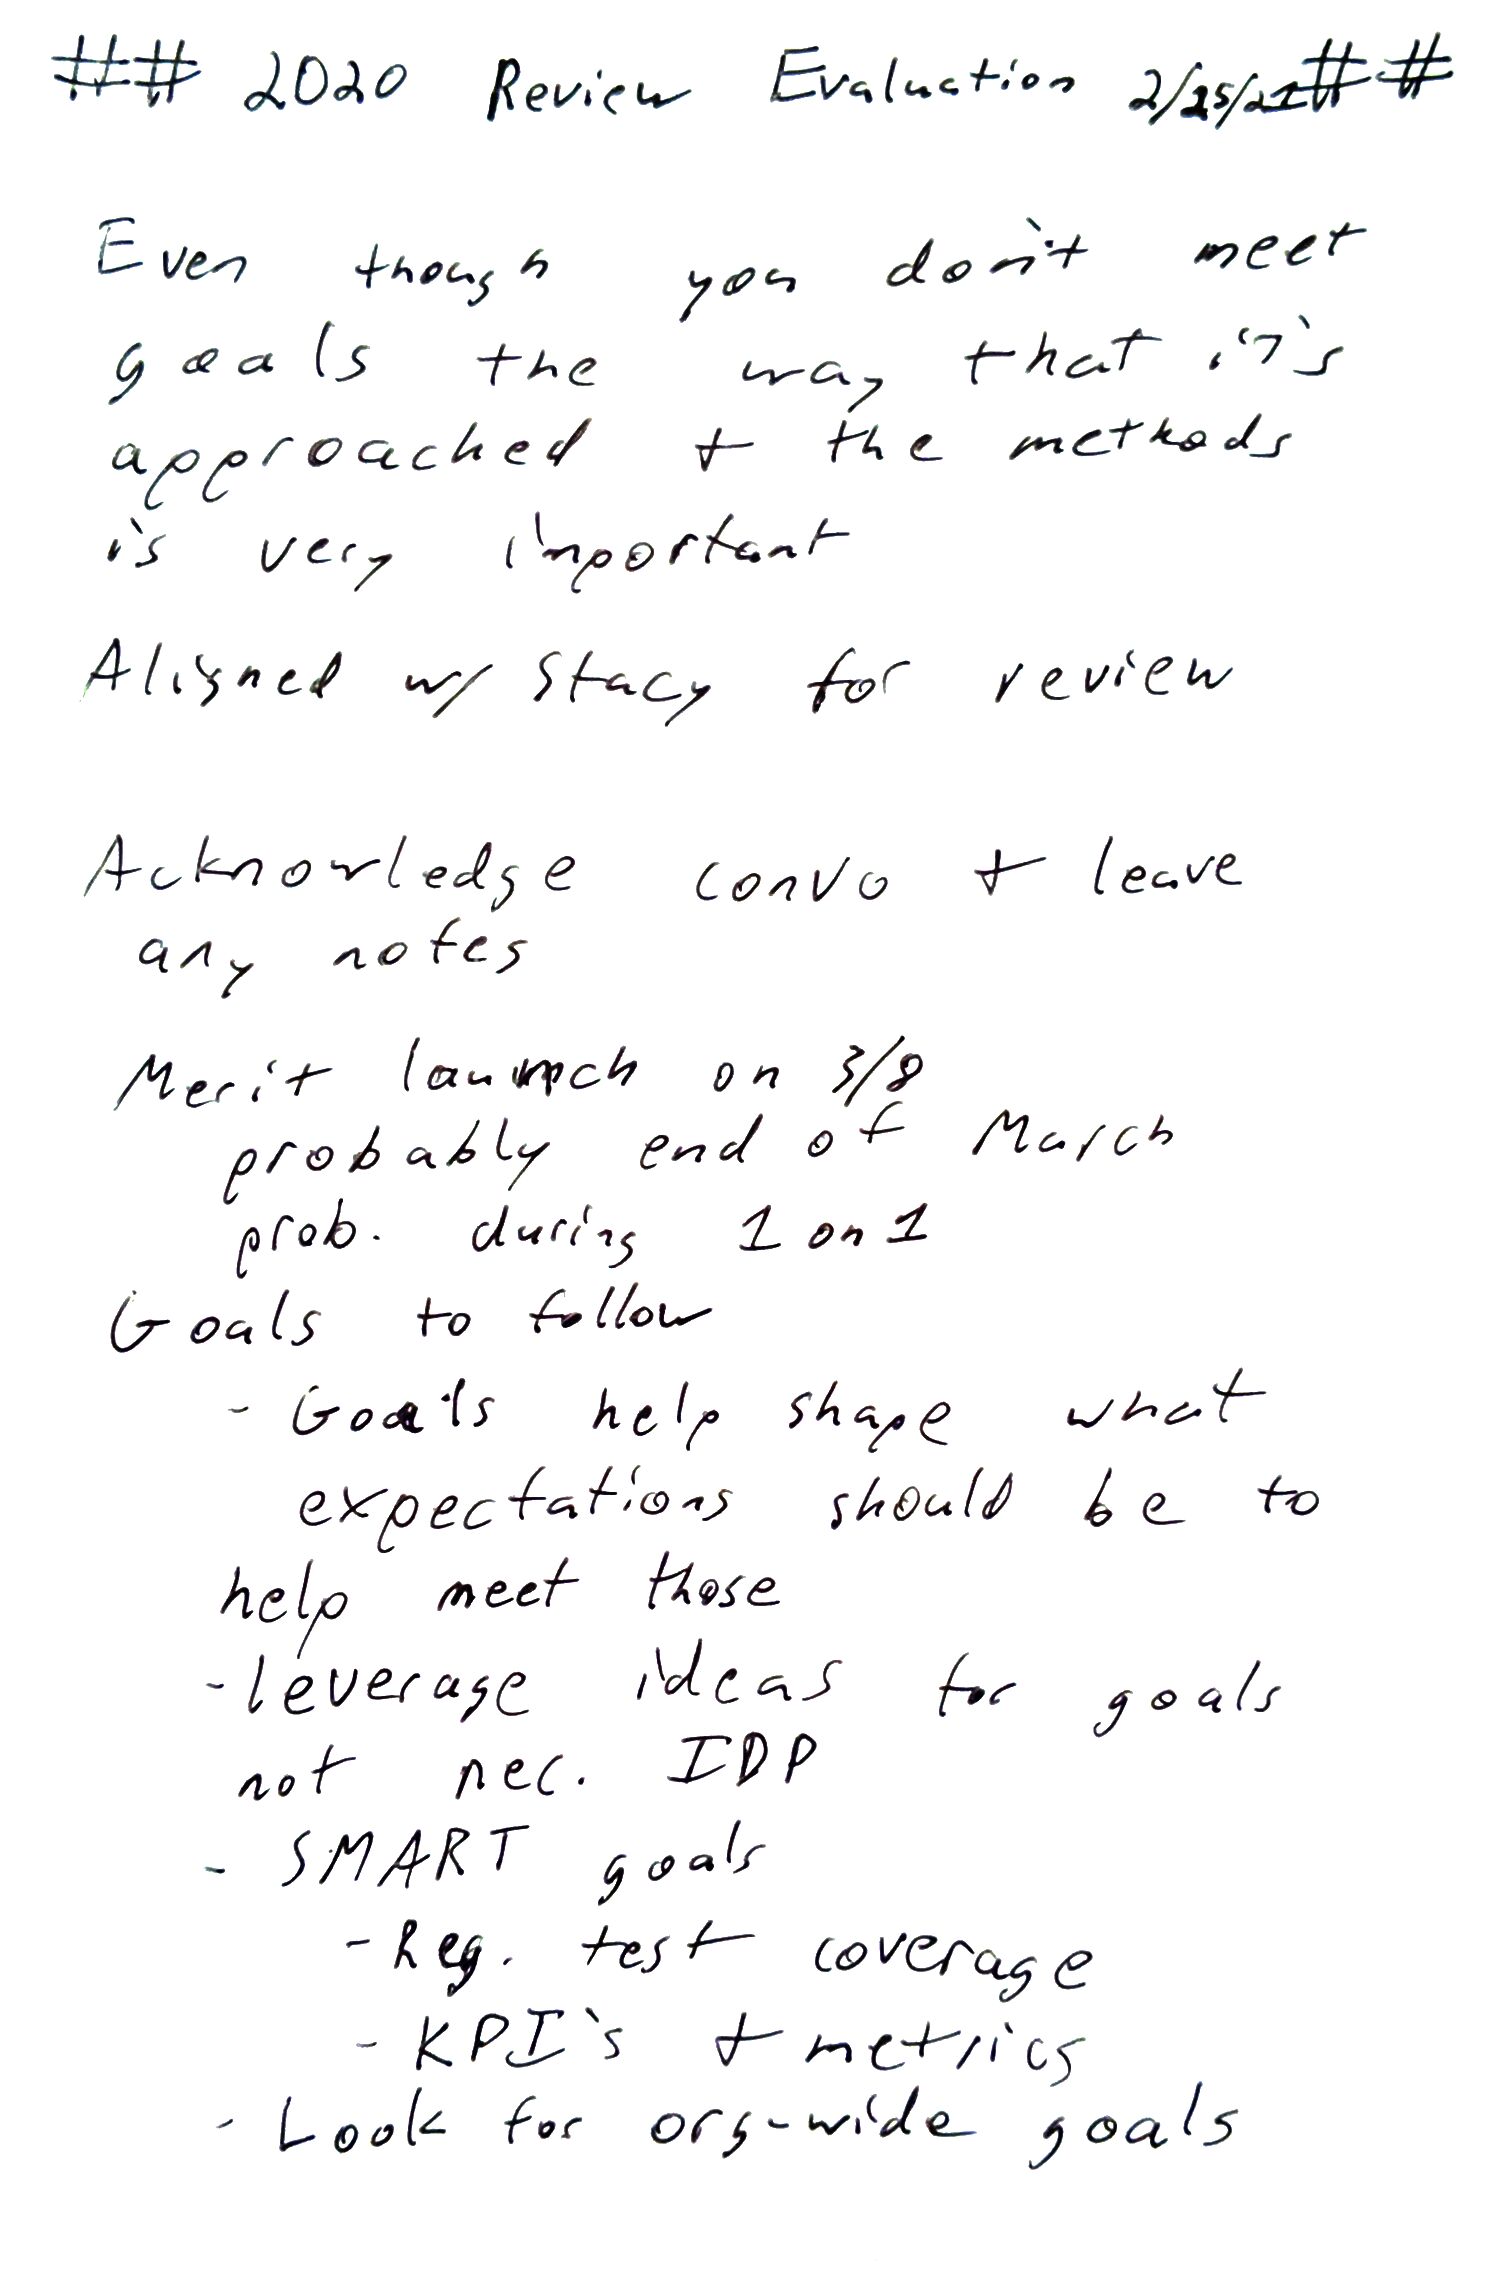 ## 2020 Review Evaluation 2/25/21 ##
Even though you don't meet
goals the way that it's
approached + the methods
is very important
Aligned w/ Stacy for review
Acknowledge convo + leave
any notes
Merit launch on 3/8
probably end of March
prob. during 1 on 1
Goals to follow
- Goals help shape what
expectations should be to
help meet those
- leverage ideas for goals
not nec. IDP
- SMART goals
- Reg. test coverage
- KPI's + metrics
- Look for org-wide goals